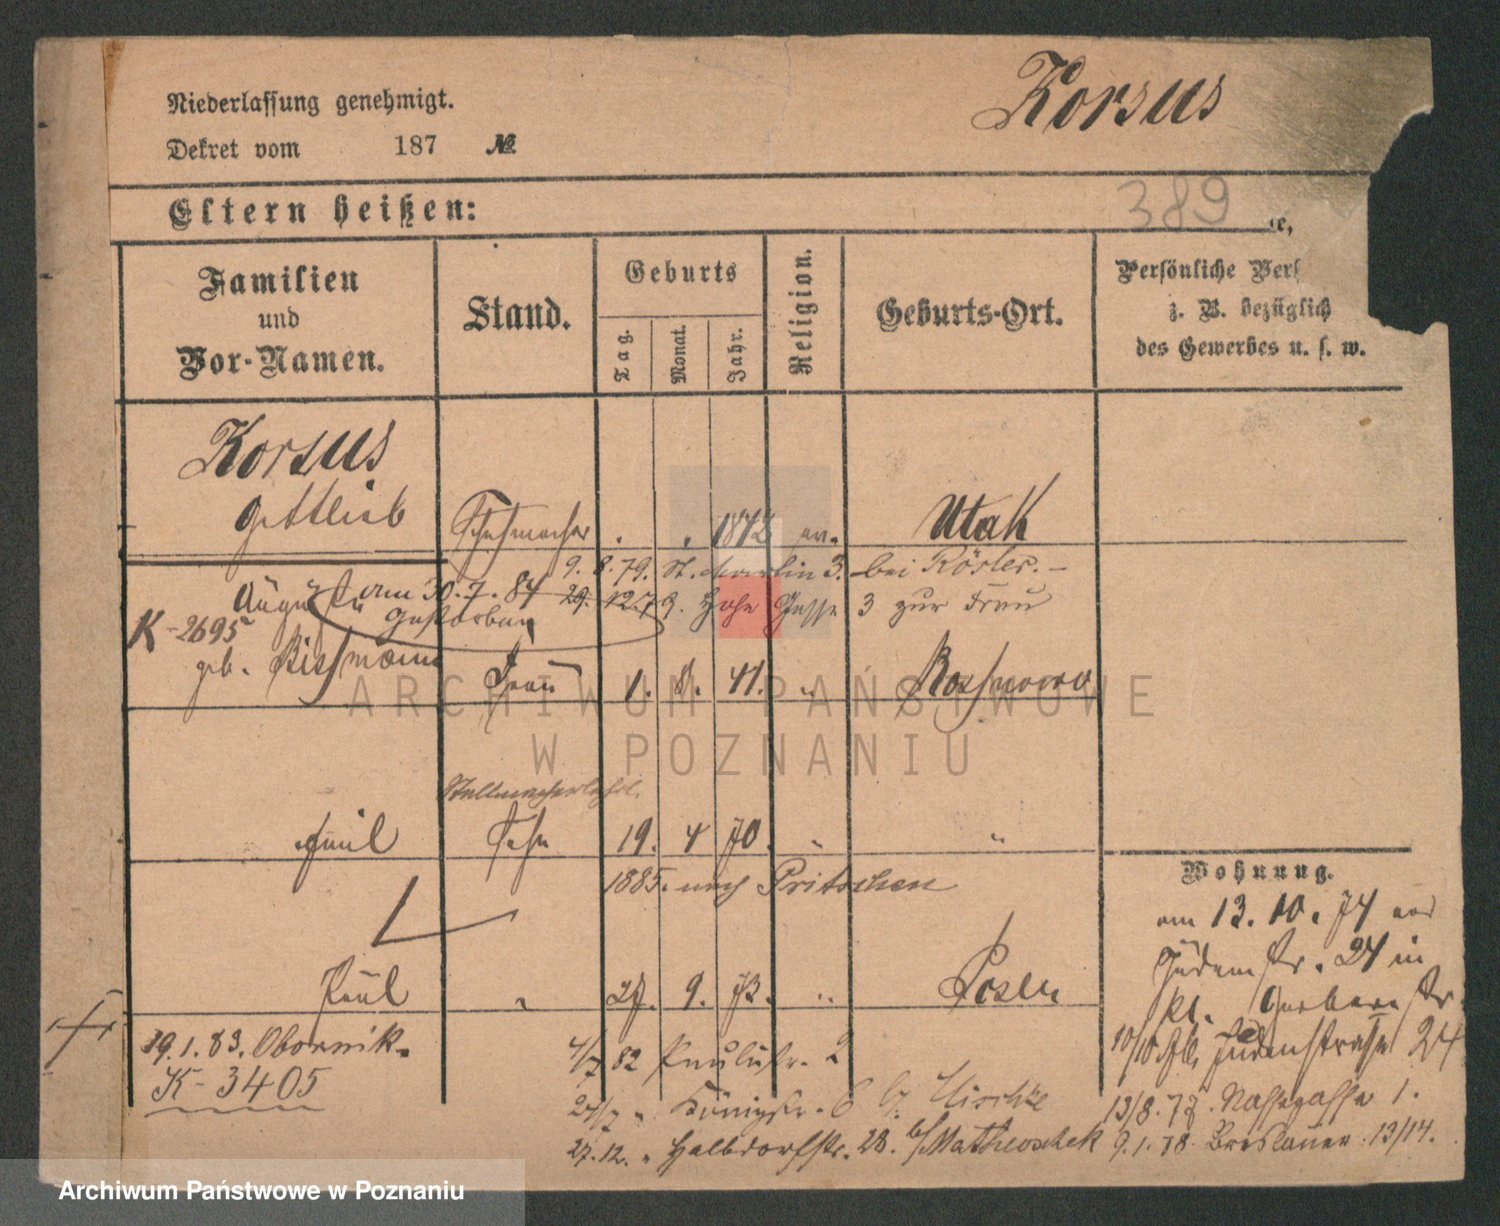 Niederlassung genehmigt.
Korsus
Dekret vom 187 №
389
Eltern heißen:
Familien
und
Vor-Namen.
Stand.
Geburts
Tag.
Monat.
Jahr.
Religion.
Geburts-Ort.
Persönliche
z. B. bezüglich
des Gewerbes u. s. w.
Korsus
Gottlieb Schuhmacher . . 1842 ev. Utak
9. 8. 79. St. Martin 3. bei Rösler. –
Auguste am 30. 7. 84 29. 12. 79. Hohe Gasse 3 zur Frau
gestorben
K-2695
geb. Bissmann Frau 1. 8. 41. "
ARCHIWUM PAŃSTWOWE
W POZNANIU
Stellmacherlehrl.
Emil Sohn 19. 4 70. " "
1885. nach Pritschen
Paul " 27. 9. 73. " Posen
Wohnung.
am 13. 10. 74 aus
Judenstr. 24 in
kl. Gerberstr.
Judenstrasse 24
13/8. 77. Nassegasse 1.
9. 1. 78. Breslauer 13/14.
19. 1. 83. Obornik.
K-3405
4/7 82 Paulistr. 2
24/7 " Königstr. 6
27. 12. " Halbdorfstr. 28. b/
Archiwum Państwowe w Poznaniu